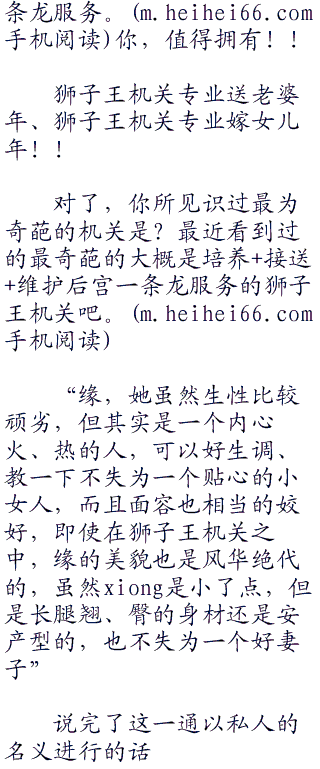 条龙服务。(m.heihei66.com
手机阅读)你，值得拥有！！
狮子王机关专业送老婆
年、狮子王机关专业嫁女儿
年！！
对了，你所见识过最为
奇葩的机关是？最近看到过
的最奇葩的大概是培养+接送
+维护后宫一条龙服务的狮子
王机关吧。(m.heihei66.com
手机阅读)
“缘，她虽然生性比较
顽劣，但其实是一个内心
火、热的人，可以好生调、
教一下不失为一个贴心的小
女人，而且面容也相当的姣
好，即使在狮子王机关之
中，缘的美貌也是风华绝代
的，虽然xiong是小了点，但
是长腿翘、臀的身材还是安
产型的，也不失为一个好妻
子”
说完了这一通以私人的
名义进行的话